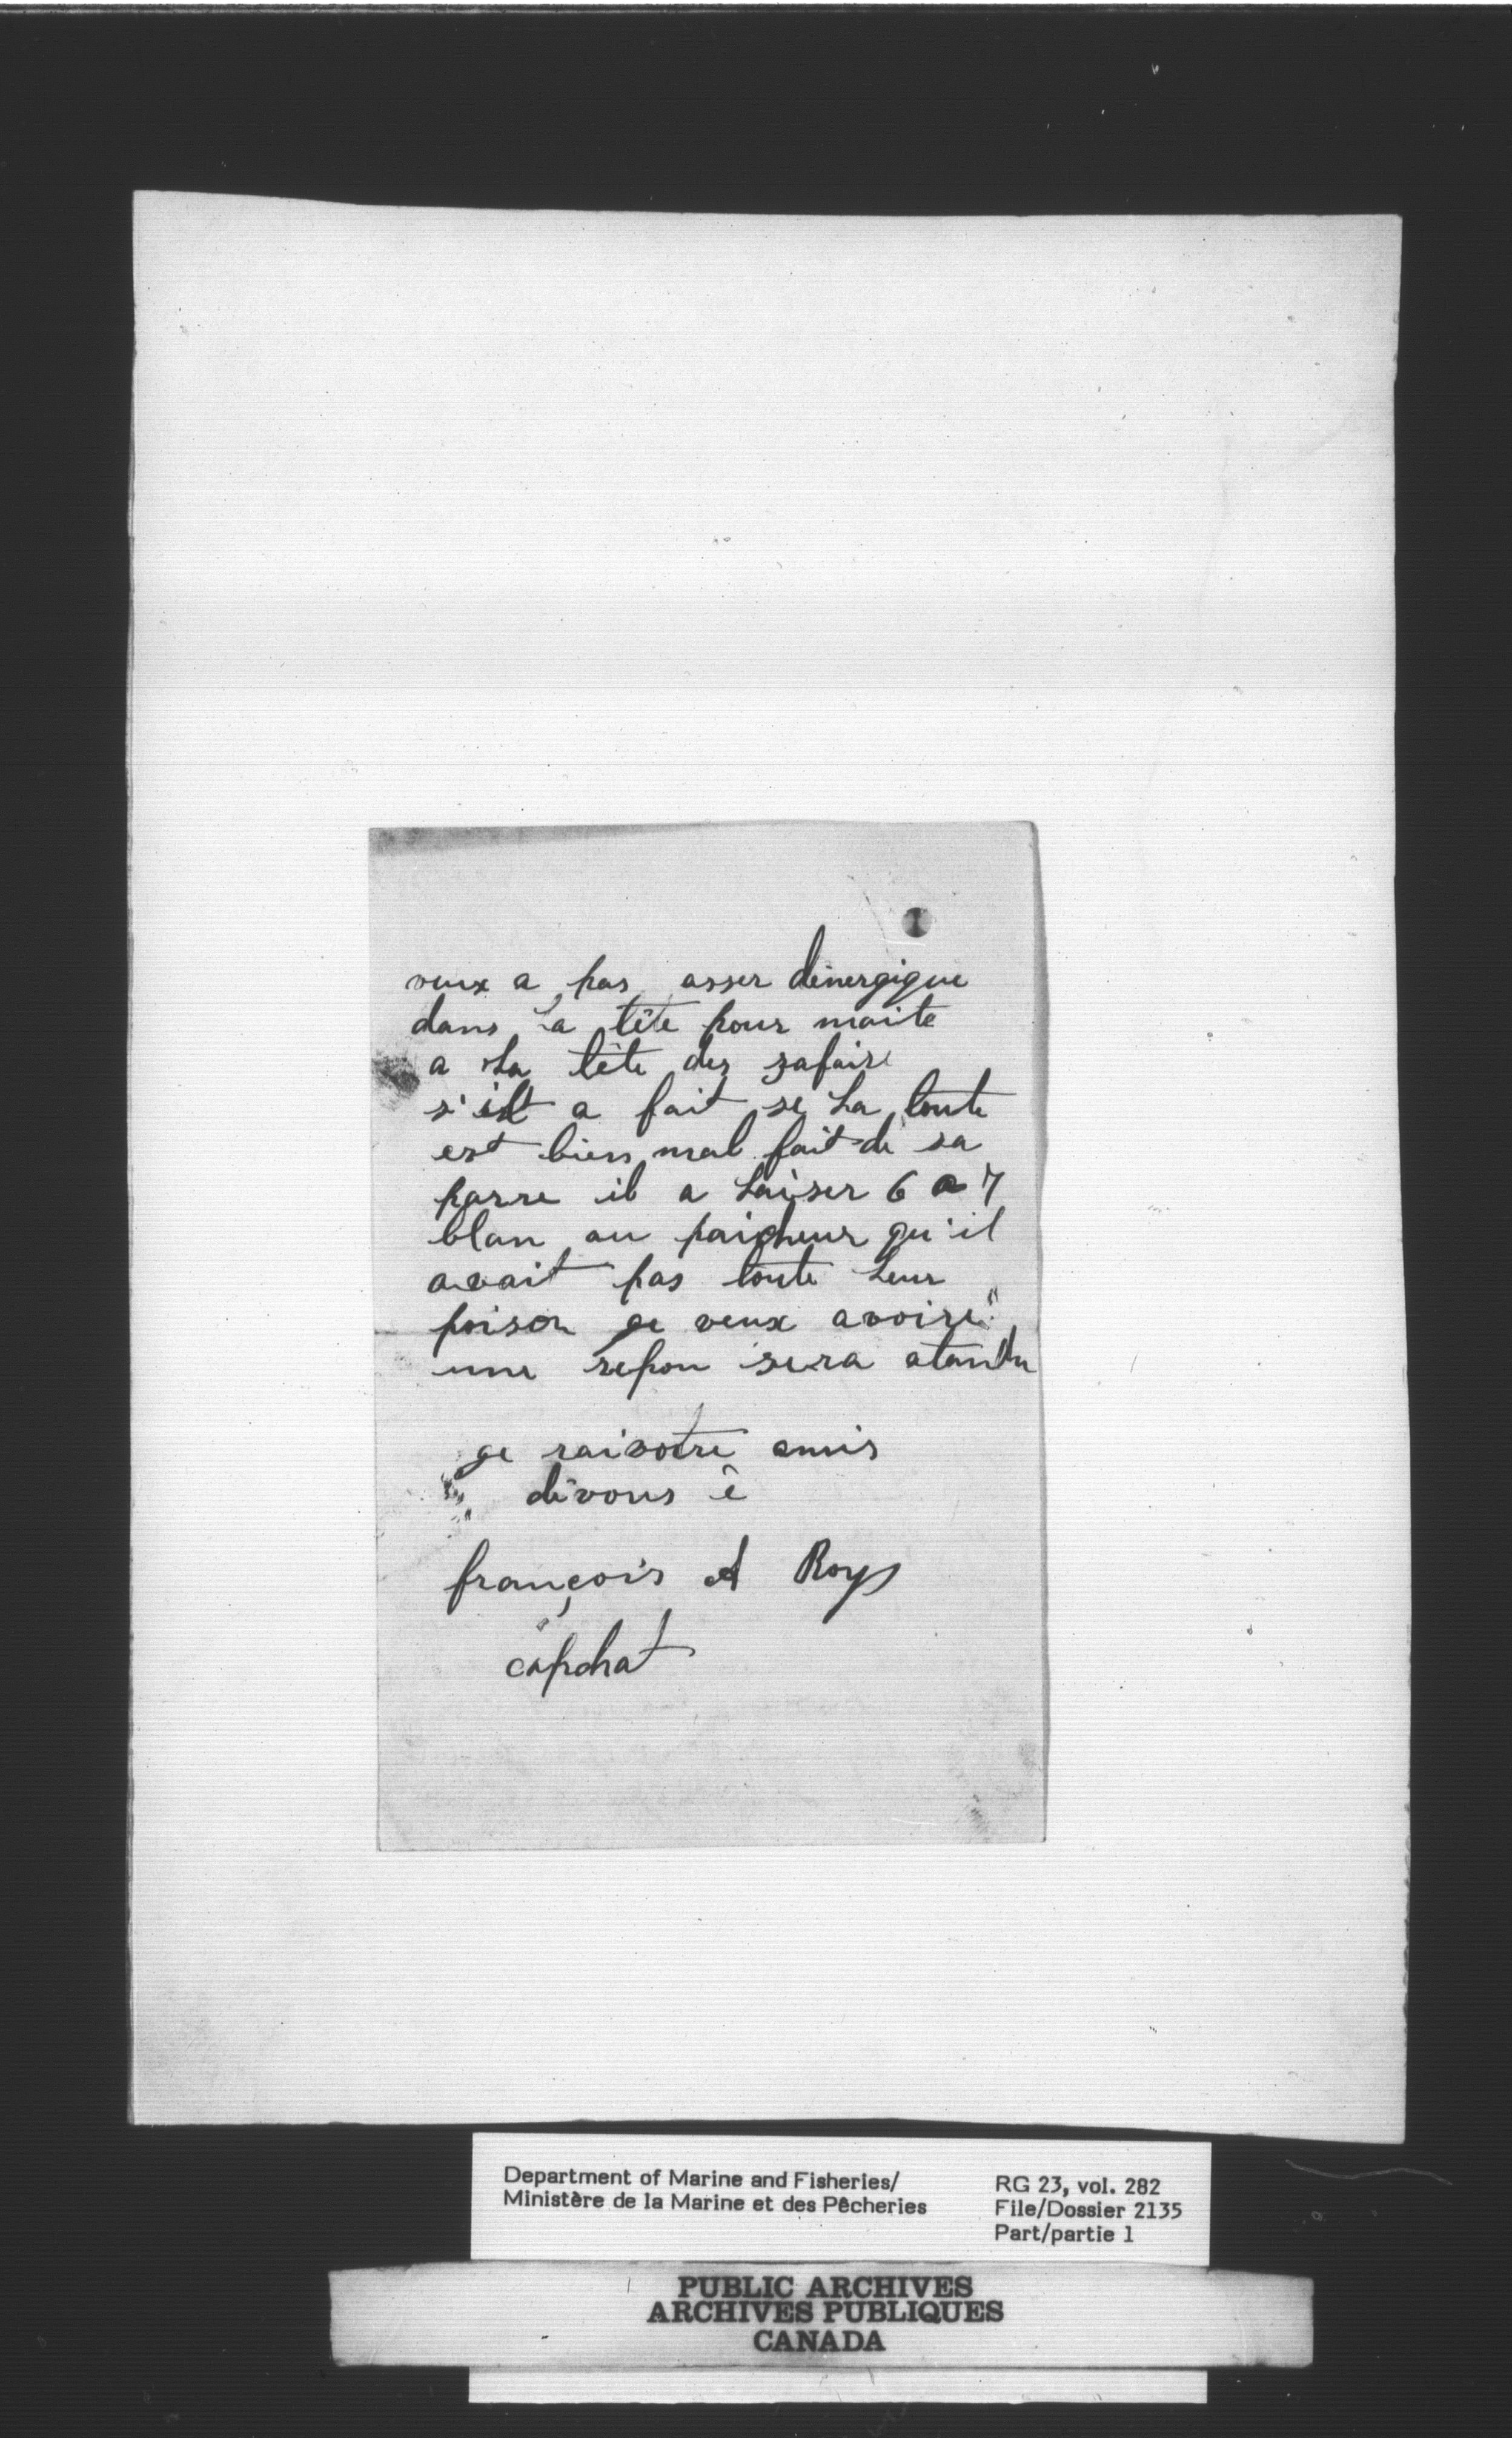 veux a pas asser dénergique
dans La tête pour maite
a La tête des zafaire
s'ilt a fait se La toute
est bien mal fait de sa
parre il a Laiser 6 a 7
blan au paicheur qu'il
avait pas toute Leur
poison ge veux avoire
une repon sera atandu
ge rai votre amis
dévous é
françois A Roys
capchat
Department of Marine and Fisheries/
Ministère de la Marine et des Pêcheries
RG 23, vol. 282
File/Dossier 2135
Part/partie 1
PUBLIC ARCHIVES
ARCHIVES PUBLIQUES
CANADA